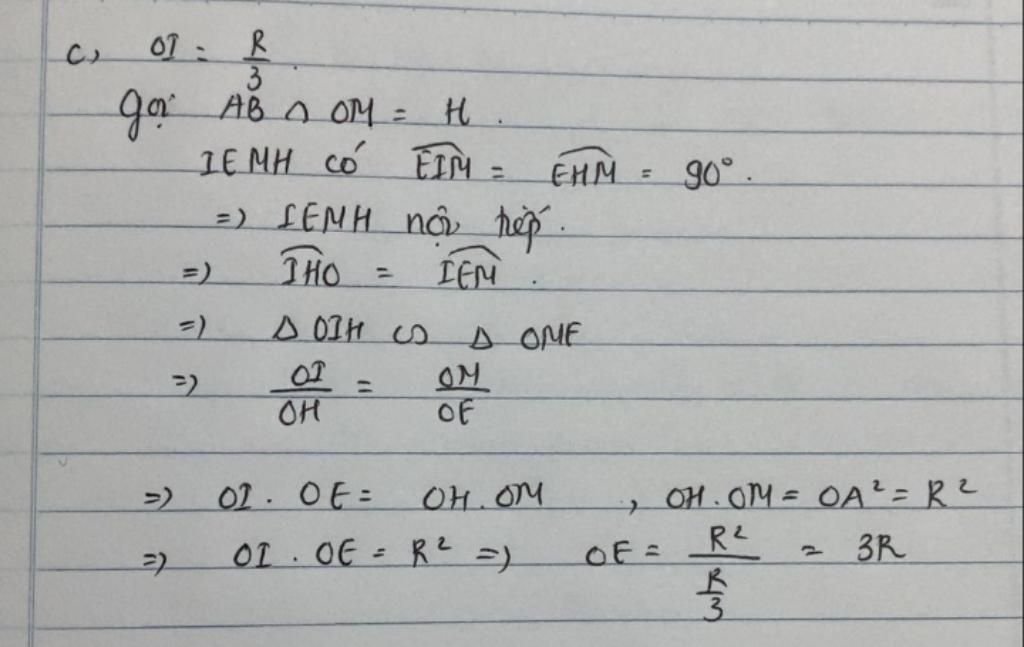 c, OI = R/3.
Gọi AB ∩ OM = H.
IEMH có \widehat{EIM} = \widehat{EHM} = 90°.
=> IEMH nội tiếp.
=> \widehat{IHO} = \widehat{IEM}.
=> Δ OIH ∽ Δ OME
=> OI/OH = OM/OE
=> OI . OE = OH.OM , OH.OM = OA² = R²
=> OI . OE = R² => OE = R²/(R/3) = 3R